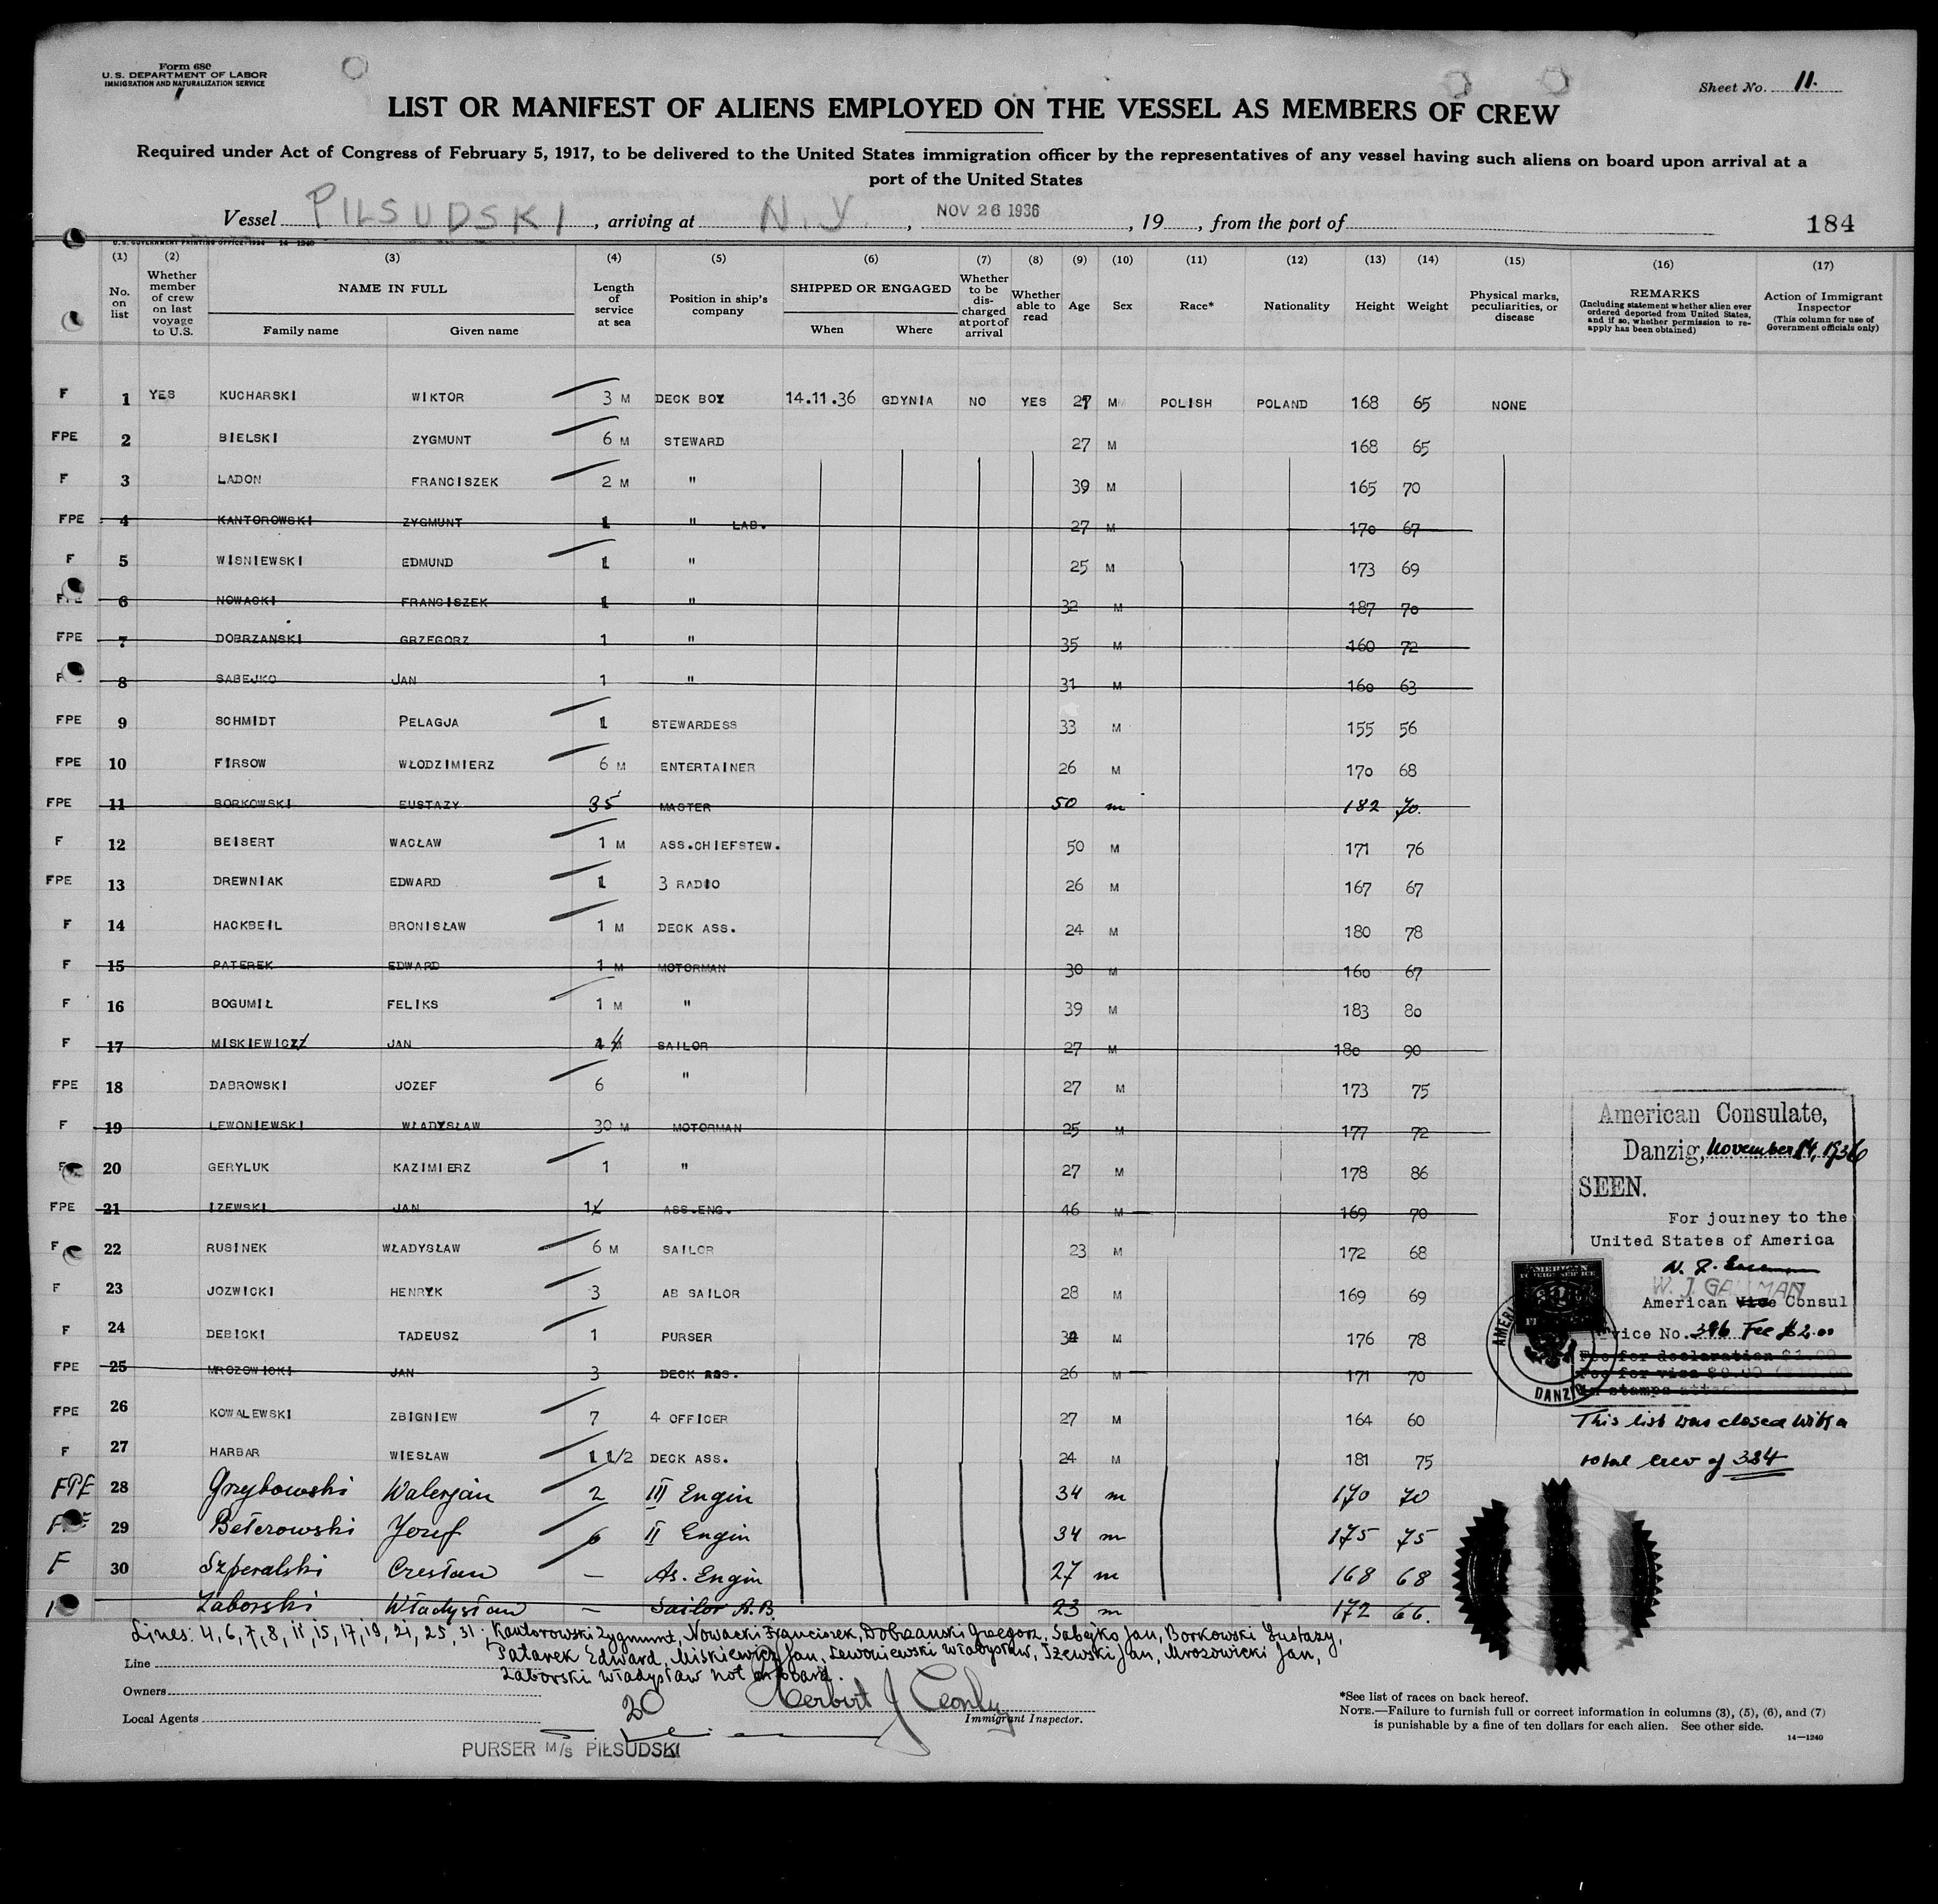 Form 680
U. S. DEPARTMENT OF LABOR
IMMIGRATION AND NATURALIZATION SERVICE
Sheet No. 11.
LIST OR MANIFEST OF ALIENS EMPLOYED ON THE VESSEL AS MEMBERS OF CREW
Required under Act of Congress of February 5, 1917, to be delivered to the United States immigration officer by the representatives of any vessel having such aliens on board upon arrival at a
port of the United States
Vessel PILSUDSKI, arriving at N.Y., NOV 26 1936, 19, from the port of
184
U. S. GOVERNMENT PRINTING OFFICE: 1934 14-1240
(1) (2) (3) (4) (5) (6) (7) (8) (9) (10) (11) (12) (13) (14) (15) (16) (17)
No. on list
Whether member of crew on last voyage to U.S.
NAME IN FULL
Family name Given name
Length of service at sea
Position in ship's company
SHIPPED OR ENGAGED
When Where
Whether to be discharged at port of arrival
Whether able to read
Age Sex Race* Nationality Height Weight
Physical marks, peculiarities, or disease
REMARKS
(Including statement whether alien ever ordered deported from United States, and if so, whether permission to re-apply has been obtained)
Action of Immigrant Inspector
(This column for use of Government officials only)
F 1 YES KUCHARSKI WIKTOR 3 M DECK BOY 14.11.36 GDYNIA NO YES 27 M POLISH POLAND 168 65 NONE
FPE 2 BIELSKI ZYGMUNT 6 M STEWARD 27 M 168 65
F 3 LADON FRANCISZEK 2 M " 39 M 165 70
FPE 4 KANTOROWSKI ZYGMUNT 1 " LAB. 27 M 170 67
F 5 WISNIEWSKI EDMUND 1 " 25 M 173 69
FPE 6 NOWACKI FRANCISZEK 1 " 32 M 187 70
FPE 7 DOBRZANSKI GRZEGORZ 1 " 35 M 160 72
F 8 SABEJKO JAN 1 " 31 M 160 63
FPE 9 SCHMIDT PELAGJA 1 STEWARDESS 33 M 155 56
FPE 10 FIRSOW WŁODZIMIERZ 6 M ENTERTAINER 26 M 170 68
FPE 11 BORKOWSKI EUSTAZY 35 MASTER 50 m 182 70.
F 12 BEISERT WACŁAW 1 M ASS.CHIEFSTEW. 50 M 171 76
FPE 13 DREWNIAK EDWARD 1 3 RADIO 26 M 167 67
F 14 HACKBEIL BRONISŁAW 1 M DECK ASS. 24 M 180 78
F 15 PATEREK EDWARD 1 M MOTORMAN 30 M 160 67
F 16 BOGUMIŁ FELIKS 1 M " 39 M 183 80
F 17 MISKIEWICZ JAN 4 SAILOR 27 M 180 90
FPE 18 DABROWSKI JOZEF 6 " 27 M 173 75
F 19 LEWONIEWSKI WŁADYSŁAW 30 M MOTORMAN 25 M 177 72
F 20 GERYLUK KAZIMIERZ 1 " 27 M 178 86
FPE 21 IZEWSKI JAN 1 ASS.ENG. 46 M 169 70
F 22 RUSINEK WŁADYSŁAW 6 M SAILOR 23 M 172 68
F 23 JOZWICKI HENRYK 3 AB SAILOR 28 M 169 69
F 24 DEBICKI TADEUSZ 1 PURSER M 176 78
FPE 25 MROZOWICKI JAN 3 DECK ASS. 26 M 171 70
FPE 26 KOWALEWSKI ZBIGNIEW 7 4 OFFICER 27 M 164 60
F 27 HARBAR WIESŁAW 1 1/2 DECK ASS. 24 M 181 75
FPE 28 Grzybowski Walerjan 2 III Engin 34 m 170 70
29 Beterowski Jozef 6 II Engin 34 m 175 75
F 30 Szperalski Czesław — As. Engin 27 m 168 68
Zaborski Władysław — Sailor A.B. 23 m 172 66.
American Consulate,
Danzig, November 14, 1936
SEEN.
For journey to the
United States of America
W. J. GALLMAN
American Vice Consul
Service No. 396 Fee $2.00
Fee for declaration $1.00
AMERICAN
FOREIGN SERVICE
DANZIG
This list was closed with a
total crew of 384
Lines: 4, 6, 7, 8, 11, 15, 17, 19, 21, 25, 31: Kantorowski Zygmunt, Nowacki Franciszek, Dobrzanski Grzegorz, Sabejko Jan, Borkowski Eustazy,
Patarek Edward, Miskiewicz Jan, Lewoniewski Władysław, Izewski Jan, Mrozowicki Jan,
Zaborski Władysław not on board.
Line
Owners
Local Agents
20
Herbert J
Immigrant Inspector.
PURSER M/S PIŁSUDSKI
*See list of races on back hereof.
NOTE.—Failure to furnish full or correct information in columns (3), (5), (6), and (7)
is punishable by a fine of ten dollars for each alien. See other side.
14—1240